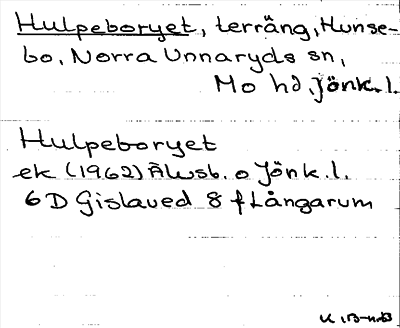 Hulpeboryet, terräng, Hunse-
bo, Norra Unnaryds sn,
Mo hd, Jönk. l.
Hulpeboryet
ek (1962) Älvsb. o Jönk. l.
6 D Gislaved 8 f Långarum